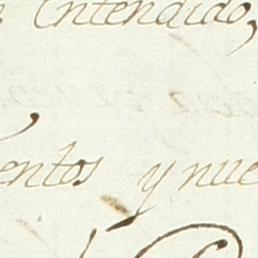 Entendido,
entos y nue